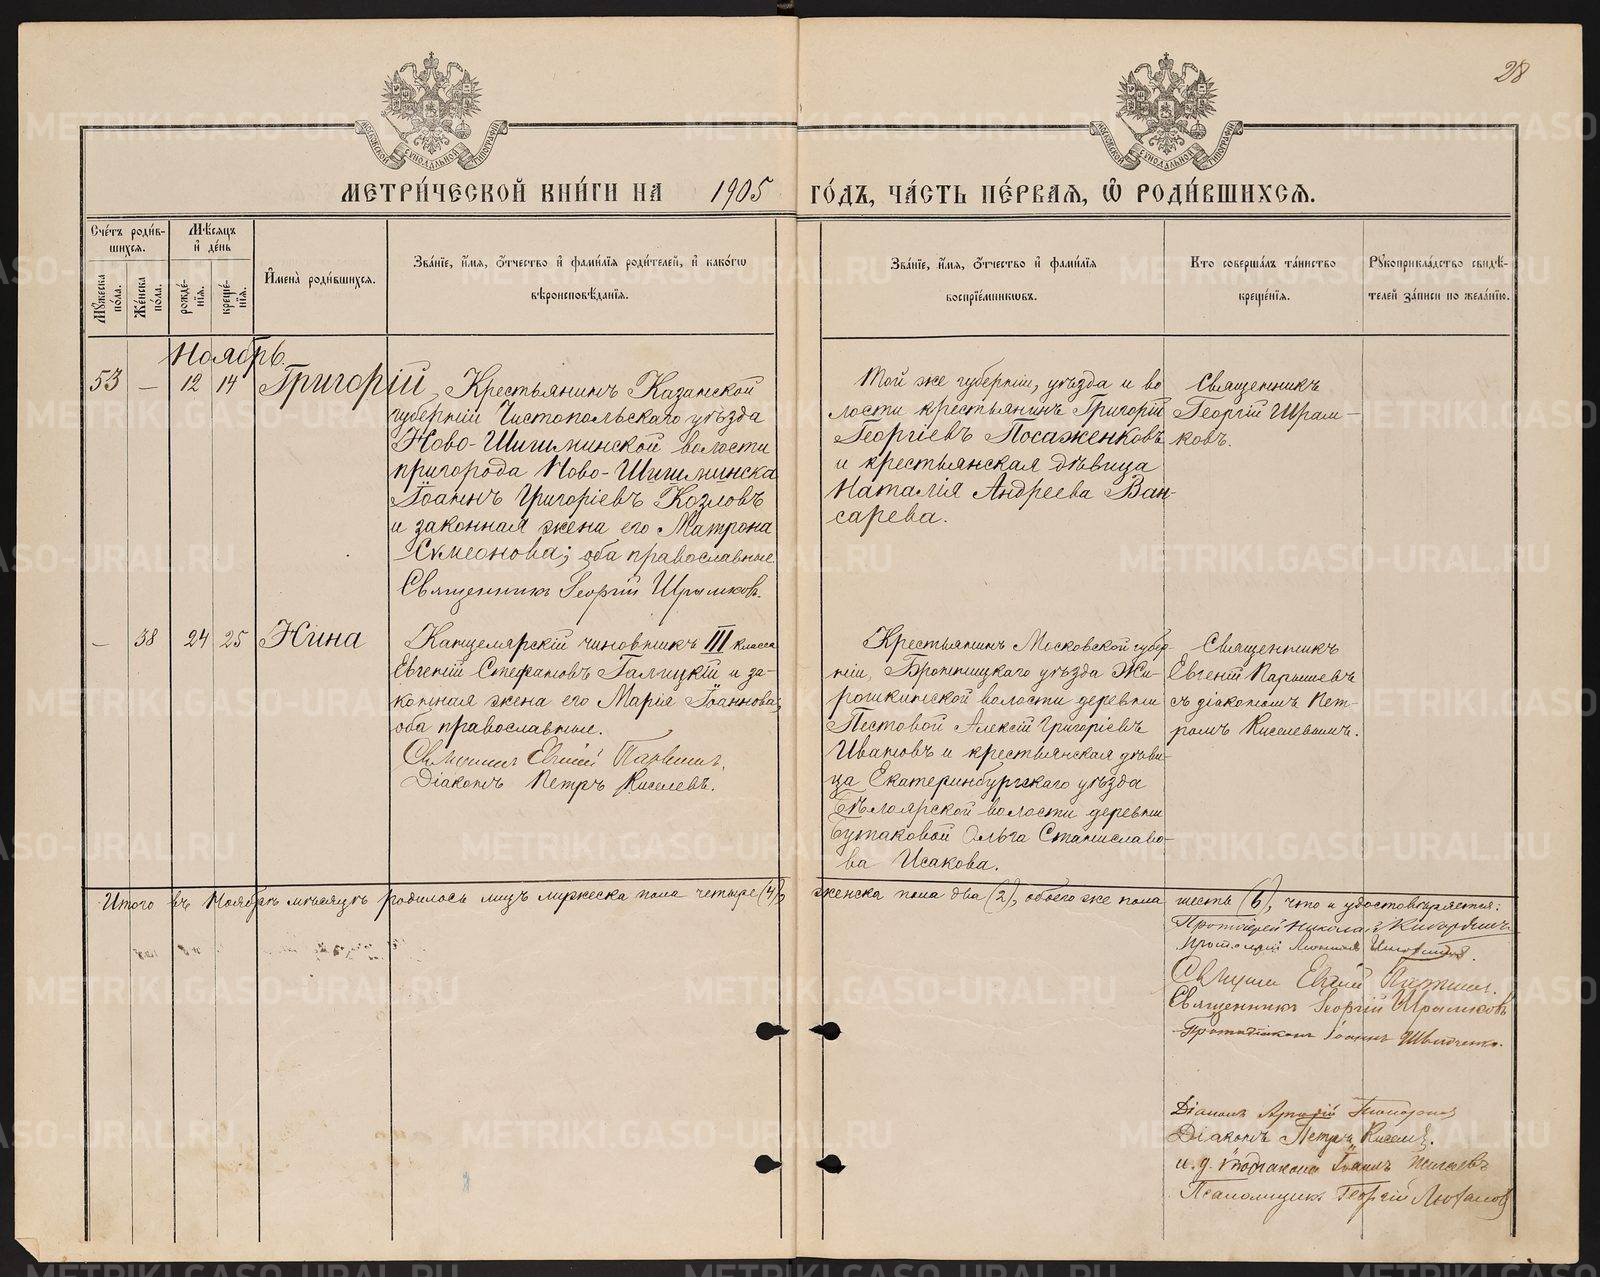 28
МОСКОВСКОЙ СУНОДАЛЬНОЙ ТИПОГРАФІИ
МОСКОВСКОЙ СУНОДАЛЬНОЙ ТИПОГРАФІИ
МЕТРИ́ЧЕСКОЙ КНИ́ГИ НА 1905 ГО́ДЪ, ЧА́СТЬ ПЕ́РВАѦ, Ѽ РОДИ́ВШИХСѦ.
Сче́тъ роди́в-
шихсѧ.
Мꙋ́жеска по́ла.
Же́нска по́ла.
Мѣ́сѧцъ
и҆ де́нь
рожде́-
нїѧ.
креще́-
нїѧ.
И҆мена̀ роди́вшихсѧ.
Зва́нїе, и҆́мѧ, ѻ҆́тчество и҆ фами́лїѧ роди́телей, и҆ како́гѡ
вѣроисповѣ́данїѧ.
Зва́нїе, и҆́мѧ, ѻ҆́тчество и҆ фами́лїѧ
воспрїе́мникѡвъ.
Кто соверша́лъ та́инство
креще́нїѧ.
Рꙋкоприкла́дство свидѣ́-
телей за́писи по жела́нїю.
Ноябрь.
53 — 12 14 Григорій
Крестьянинъ Казанской
губерніи Чистопольскаго уѣзда
Ново-Шишминской волости
пригорода Ново-Шишминска
Іоаннъ Григоріевъ Козловъ
и законная жена его Матрона
Сумеонова; оба православные.
Священникъ Георгій Шрамковъ.
Той же губерніи, уѣзда и во
лости крестьянинъ Григорій
Георгіевъ Посаженковъ
и крестьянская дѣвица
Наталія Андреева Ван-
сарева.
Священникъ
Георгій Шрам-
ковъ.
— 38 24 25 Нина
Канцелярскій чиновникъ III класса
Евгеній Стефановъ Галицкій и за-
конная жена его Марія Іоаннова;
оба православные.
Священникъ Евгеній
Діаконъ Петръ Киселевъ.
Крестьянинъ Московской губер-
ніи, Бронницкаго уѣзда Жи-
рошкинской волости деревни
Пестовой Алексій Григоріевъ
Ивановъ и крестьянская дѣви-
ца Екатеринбургскаго уѣзда
Бѣлоярской волости деревни
Бутаковой Ольга Станиславо-
ва Исакова.
Священникъ
Евгеній
съ діакономъ Пет-
ромъ Киселевымъ.
Итого въ Ноябрѣ мѣсяцѣ родилось лицъ мужеска пола четыре (4), женска пола два (2), обоего же пола шесть (6), что и удостовѣряется:
Протоіерей Николай
Протоіерей
Священникъ Евгеній
Священникъ Георгій Шрамковъ
Протодіаконъ Іоаннъ
Діаконъ
Діаконъ Петръ Киселевъ.
и. д. Іоаннъ
Псаломщикъ Георгій
METRIKI.GASO-URAL.RU